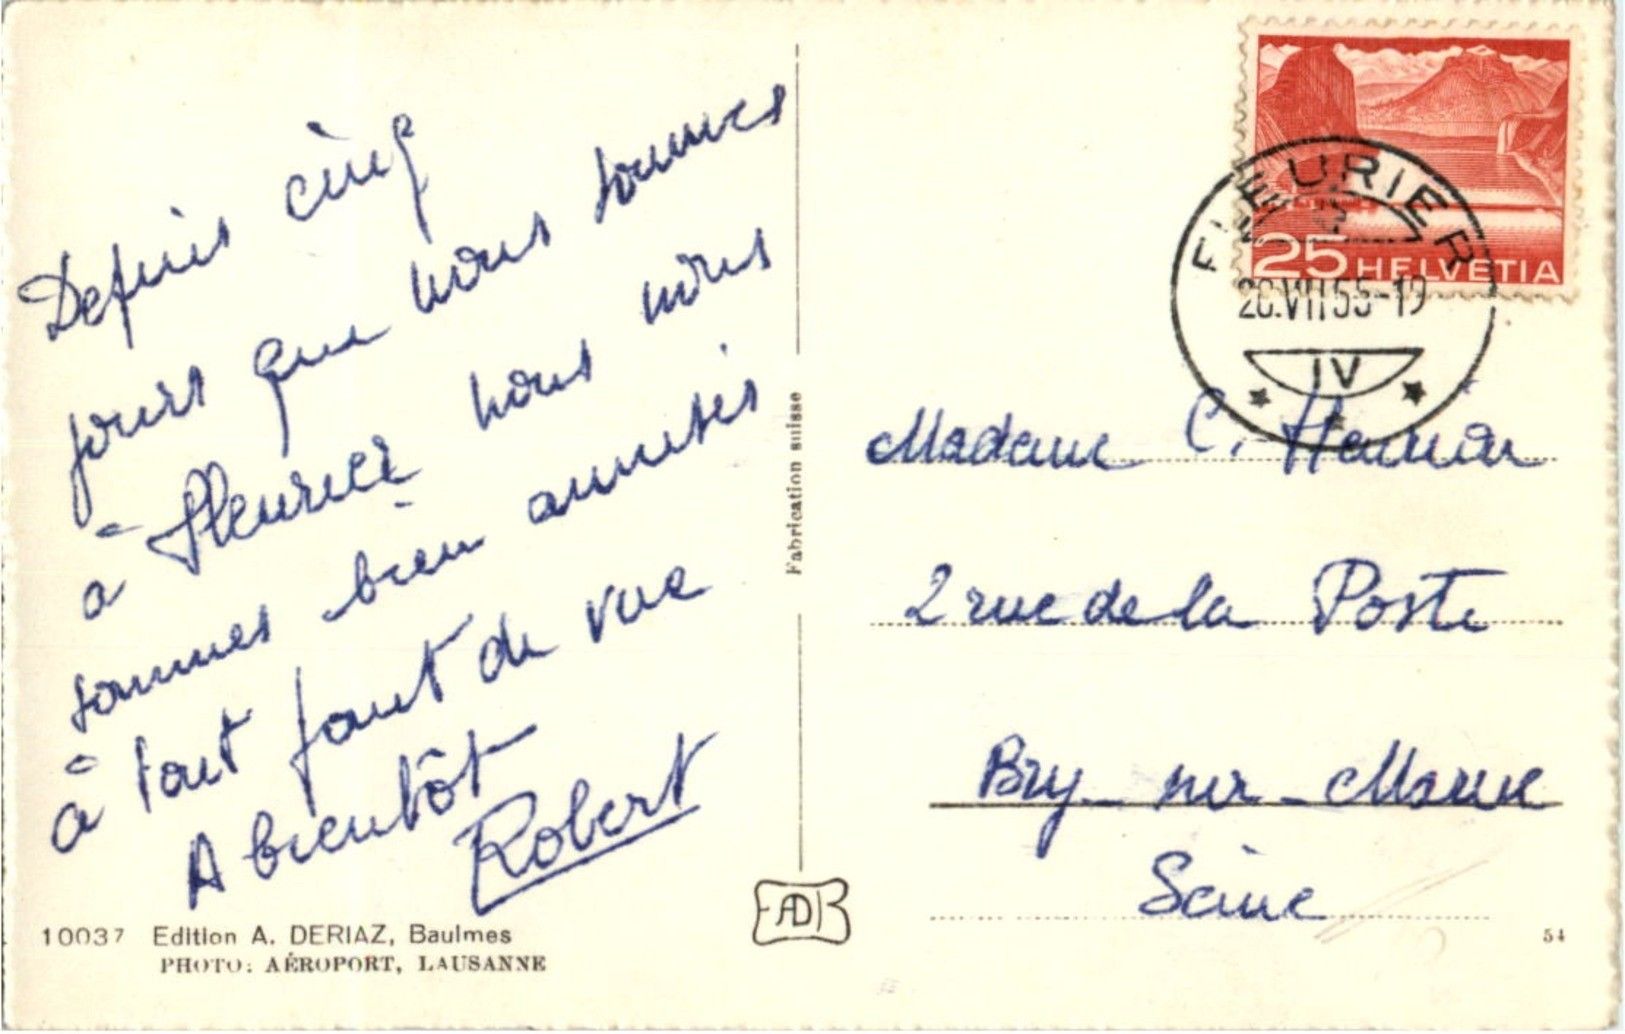 Depuis cinq
jours que nous sommes
à Fleurier nous nous
sommes bien amusés
à tout point de vue
A bientôt
Robert
10037 Edition A. DERIAZ, Baulmes
PHOTO: AÉROPORT, LAUSANNE
Fabrication suisse
AD
25 HELVETIA
FLEURIER
VII 55-19
IV
Madame C.
2 rue de la Poste
Bry-sur-Marne
Seine
54